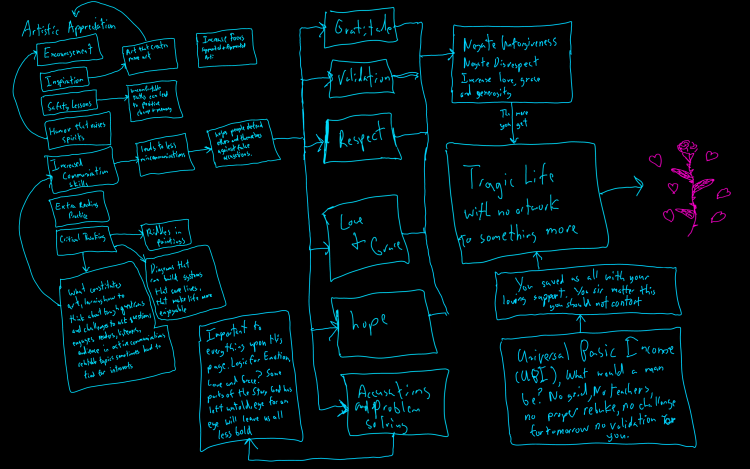 Artistic Appreciation
Encouragement
Art that creates
more art
Increase Focus
Inspiration
Safety Lessons
talks can lead
to positive
Humor that raises
spirits
Increased
Communication
Skills
Leads to less
miscommunications
helps people defend
others and themselves
against false
accusations.
Extra Reading
Practice
Critical Thinking
Riddles in
paintings
What constitutes
art, learning how to
think about tough questions
and challenge to ask questions
engages readers, listeners
audience in active communication
relatable topics sometimes hard to
find for interests
Diagrams that
can build systems
that save lives,
that make life more
enjoyable
Gratitude
Validation
Respect
Love
+
Grace
hope
Accusations
and problem
solving
Important to
everything upon this
page. Logic for Emotion
Love and Grace? Some
parts of the Story God has
left untold, eye for an
eye will leave us all
less bold
Negate Unforgiveness
Negate Disrespect
Increase love, grace
and generosity
The more
you get
Tragic Life
with no artwork
to something more
You saved us all with your
loving support. You sir matter this
you should not contort
Universal Basic Income
(UBI), What would a man
be? No grid, No teachers
no proper rebuke, no challenge
for tomorrow no validation for
you.